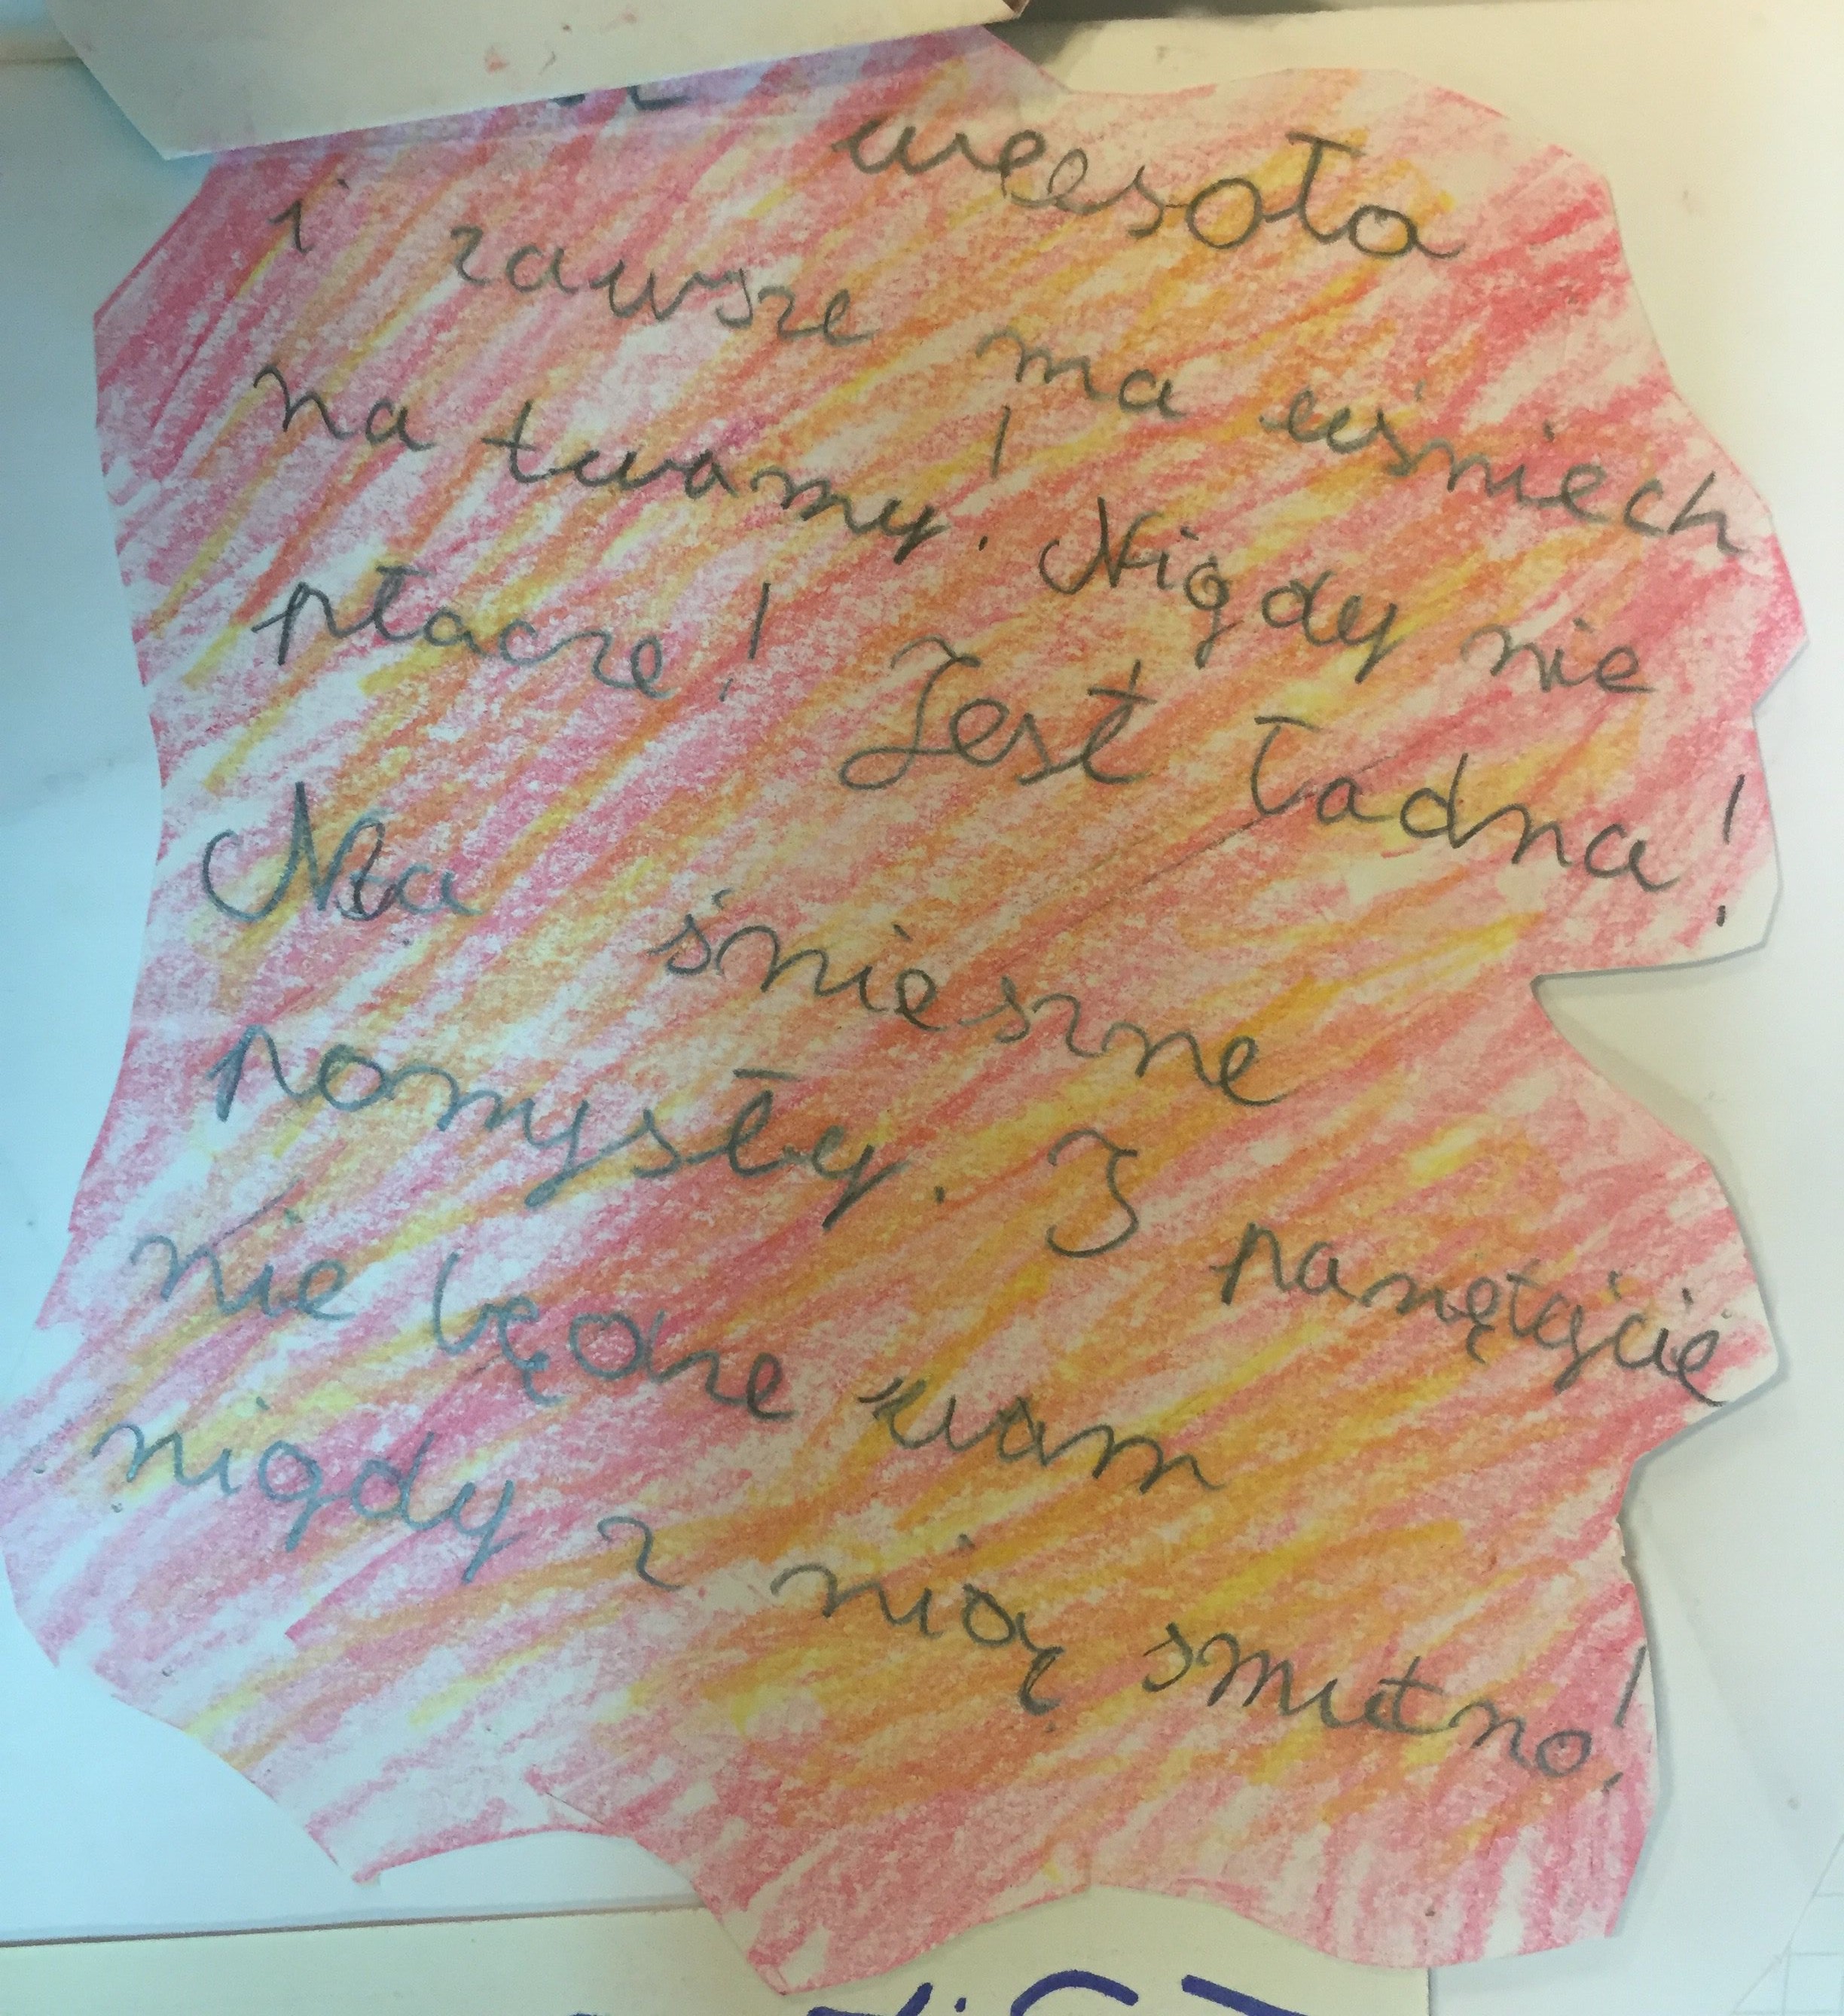 weesoła
i zawsze ma uśmiech
na twarzy! Nigdy nie
płacze! Jest ładna!
Ma śmieszne
pomysły. I pamętajcie
nie będze wam
nigdy z nią smutno!